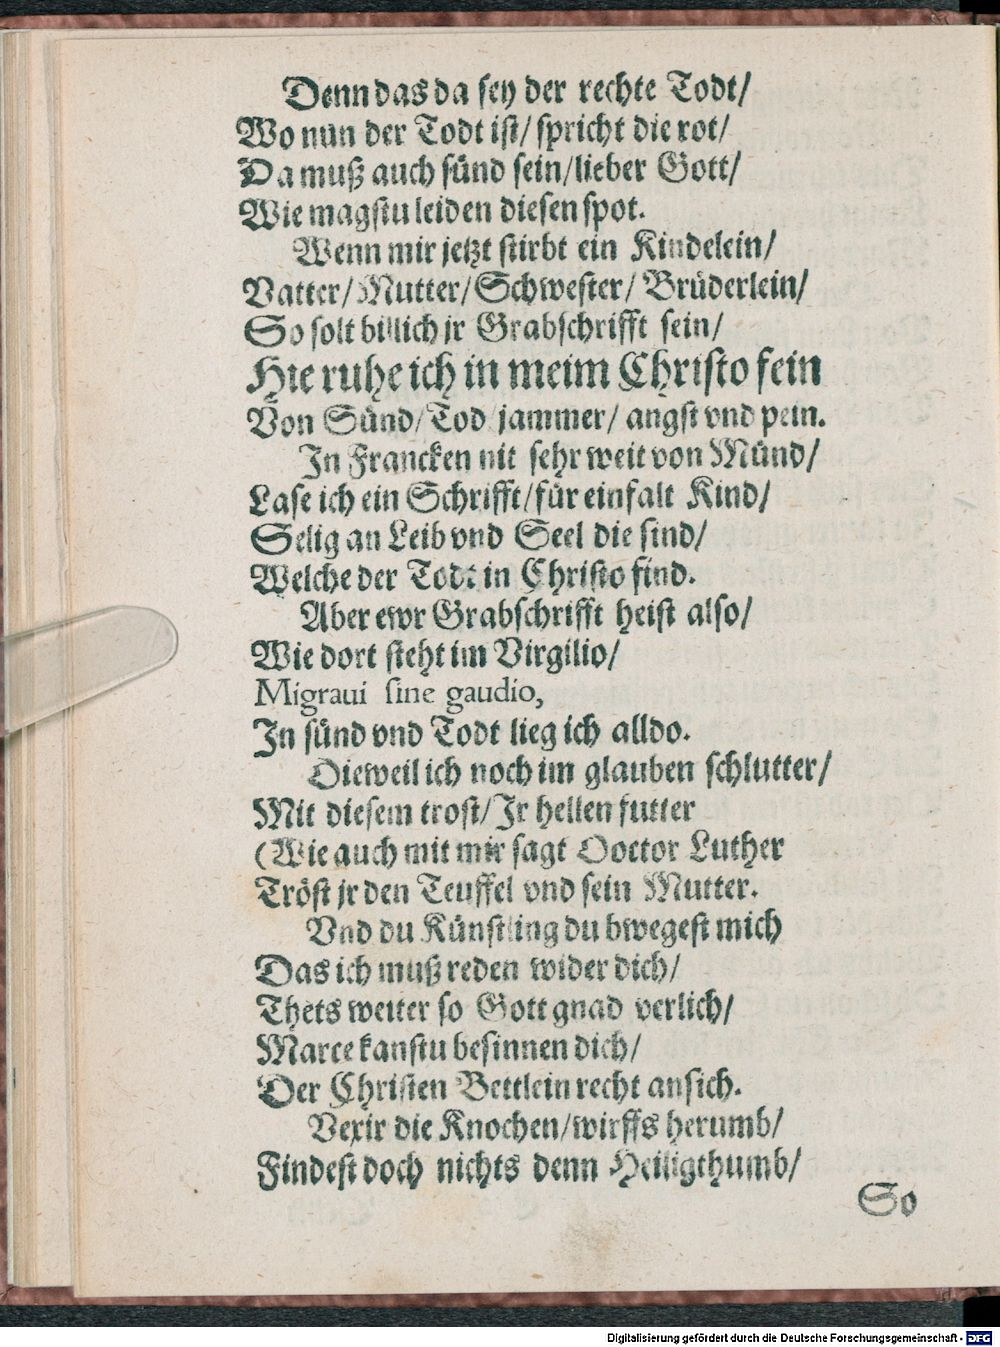 Denn das da sey der rechte Todt/
Wo nun der Todt ist/ spricht die rot/
Da muß auch sünd sein/lieber Gott/
Wie magstu leiden diesen spot.
Wenn mir jetzt stirbt ein Kindelein/
Vatter/ Mutter/ Schwester/ Brüderlein/
So solt billich jr Grabschrifft sein/
Hie ruhe ich in meim Christo fein
Von Sünd/ Tod/ jammer/ angst vnd pein.
In Francken nit sehr weit von Münd/
Lase ich ein Schrifft/für einfalt Kind/
Selig an Leib vnd Seel die sind/
Welche der Todt in Christo find.
Aber ewr Grabschrifft heist also/
Wie dort steht im Virgilio/
Migraui sine gaudio,
In sünd vnd Todt lieg ich alldo.
Dieweil ich noch im glauben schlutter/
Mit diesem trost/ Ir hellen futter
(Wie auch mit mir sagt Doctor Luther
Tröst jr den Teuffel vnd sein Mutter.
Vnd du Künstling du bwegest mich
Das ich muß reden wider dich/
Thets weiter so Gott gnad verlich/
Marce kanstu besinnen dich/
Der Christen Bettlein recht ansich.
Vexir die Knochen/wirffs herumb/
Findest doch nichts denn Heiligthumb/
So
Digitalisierung gefördert durch die Deutsche Forschungsgemeinschaft - DFG